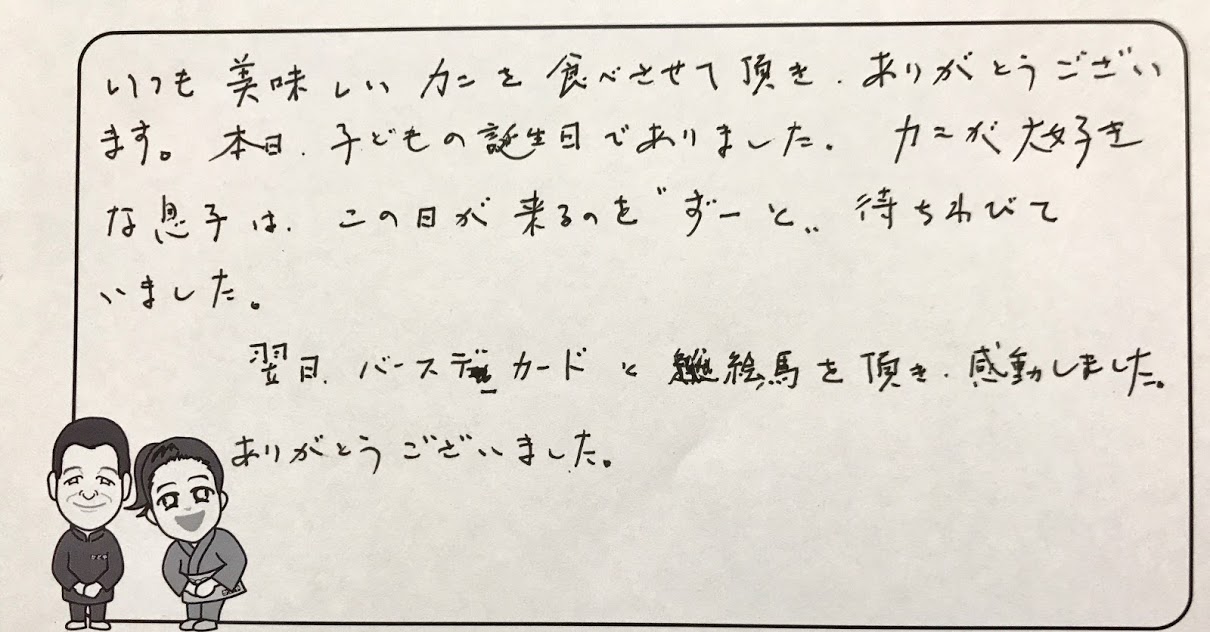 いつも美味しいカニを食べさせて頂き、ありがとうござい
ます。本日、子どもの誕生日でありました。カニが大好き
な息子は、この日が来るのを〝ずーと〟待ちわびて
いました。
翌日、バースデーカードと絵馬を頂き、感動しました。
ありがとうございました。